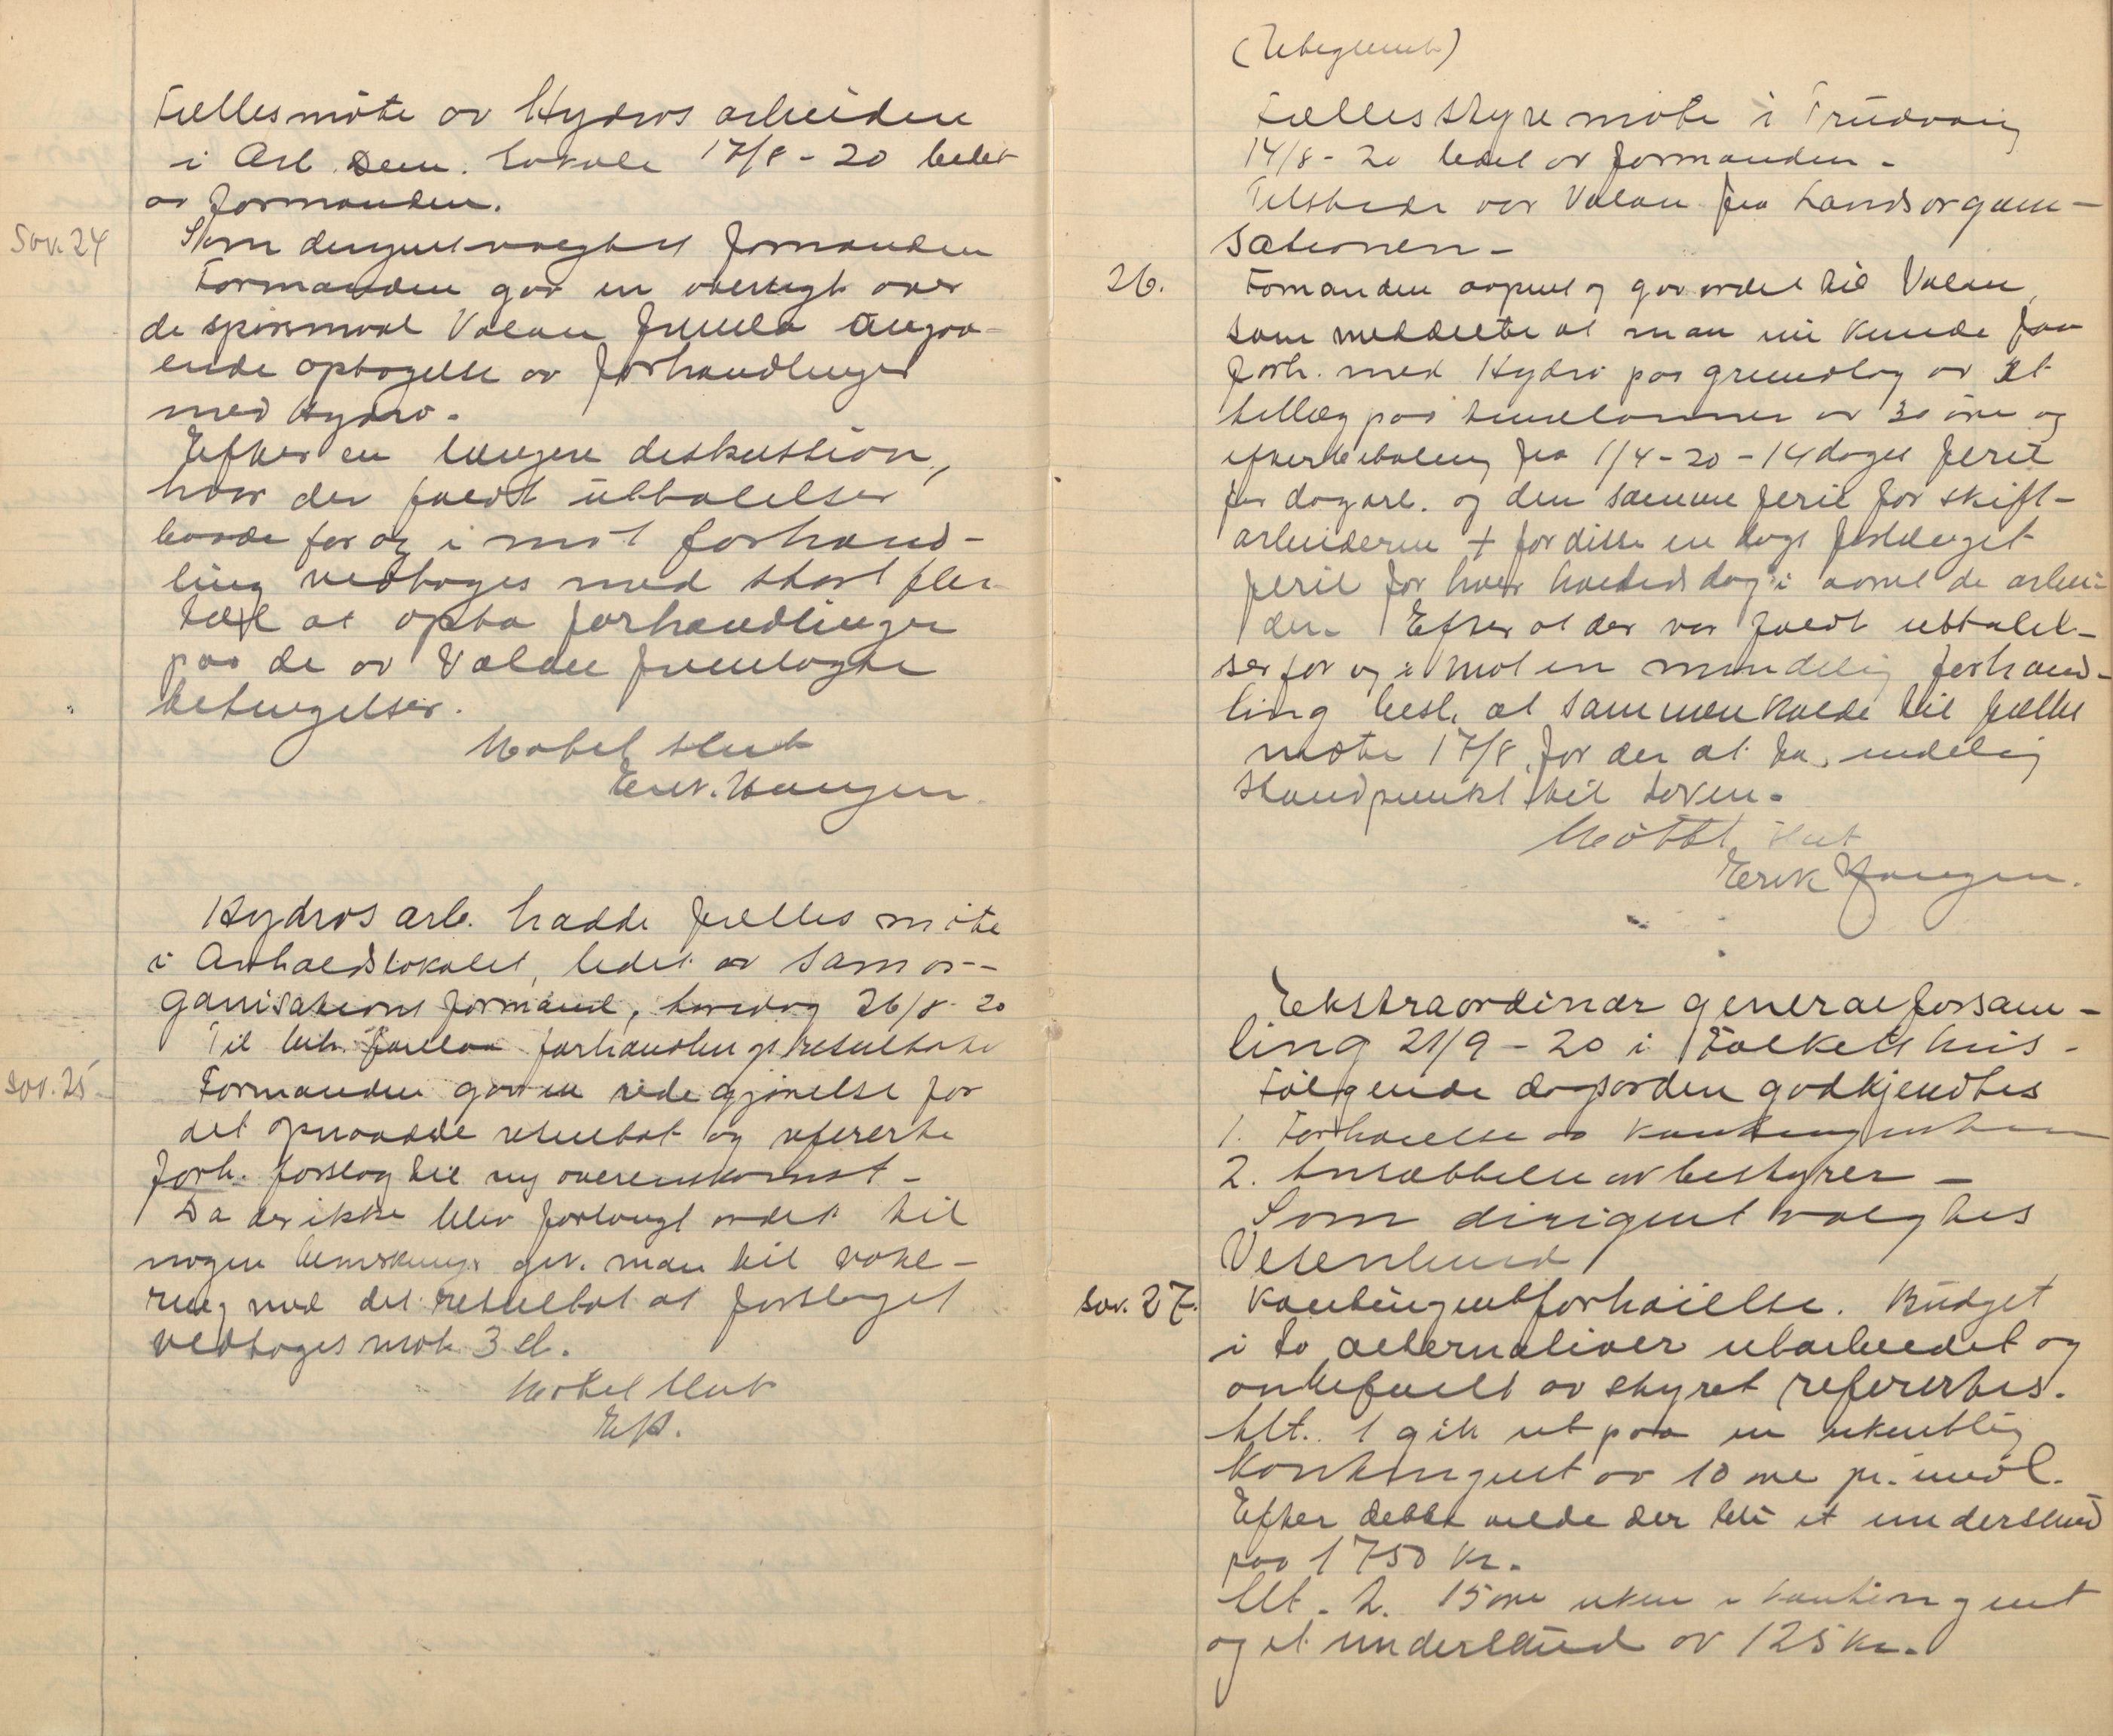 Fællesmøte av Hydros arbeidere
i Arb. Sem. Lokale 17/8 - 20 ledet
av formanden.
Sov. 24
Som dirigent valgtes formanden
Formanden gav en oversigt over
de spørsmaal Valau fremla angaa-
ende optagelse av forhandlinger
med Hydro.
Efter en længere diskussion,
hvor der faldt uttalelser
baade for og i mot forhand-
ling vedtoges med stort fler-
tal at opta forhandlinger
paa de av Valau fremlagte
betingelser.
Møtet slut
Erik. Haugen.
Hydros arb. hadde fælles møte
i Avholdslokalet, ledet av Samor-
ganisations formand, torsdag 26/8 - 20
Til beh. forhandlingsresultatet
Sov. 25
Formanden gav en redegjørelse for
det opnaadde resultat og refererte
forh. forslag til ny overenskomst -
Da der ikke blev forlangt ordet til
nogen bemerkninger gik man til vote-
ring med det resultat at forslaget
vedtoges mot 3 st.
Møtet slut
E.H.
(Uteglemt)
Fælles styremøte i Trudvang
14/8 - 20 ledet av formanden -
Tilstede var Valau fra Landsorgani-
sationen -
26.
Fomanden aapnet og gav ordet til Valau,
som meddelte at man nu kunde faa
forh. med Hydro paa grundlag av et
tillæg paa timelønnen av 30 øre og
efterbetaling fra 1/4 - 20 - 14 dages ferie
for dagarb. og den samme ferie for skift-
arbeiderne + for disse en dags forlænget
ferie for hver helligdag i aaret de arbei-
der. Efter at der var faldt uttalel-
ser for og i mot en mundelig forhand-
ling besl. at sammenkalde til fælles
møte 17/8, for der at ta endelig
standpunkt til saken.
Møtet slut
Erik Haugen.
Ekstraordinær generalforsam-
ling 21/9 - 20 i Folkets hus -
Følgende dagsorden godkjendtes
1. Forhøielse av kontingenten
2. Ansættelse av bestyrer -
Som dirigent valgtes
Vesenlund
Sov. 27.
Kontingentforhøielse. Budget
i to alternativer utarbeidet og
anbefalt av styret refererter.
Alt. 1 gik ut paa en ukentlig
Kontingent av 10 øre pr. medl.
Efter dette vilde der bli et underskud
paa 1750 kr.
Alt. 2. 15 øre uken i kontingent
og et underskud av 125 kr.